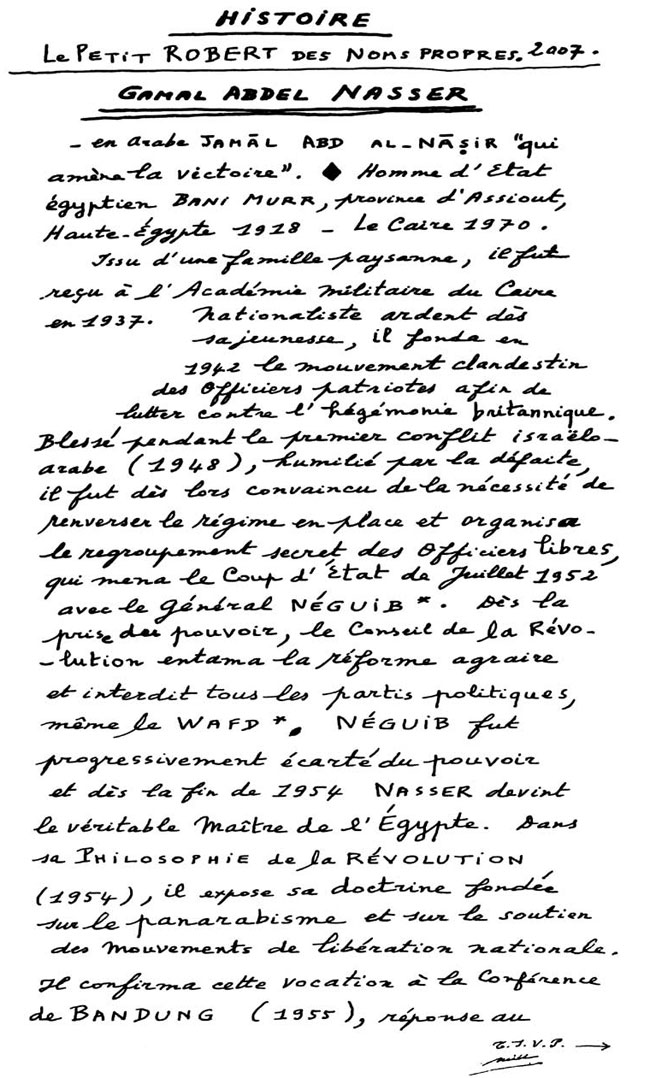 HISTOIRE
Le PETIT ROBERT DES NOMS PROPRES. 2007.
GAMAL ABDEL NASSER
- en arabe JAMĀL ABD AL-NĀṢIR "qui
amène la victoire". ◆ Homme d'Etat
égyptien BANI MURR, province d'Assiout,
Haute-Égypte 1918 - Le Caire 1970.
Issu d'une famille paysanne, il fut
reçu à l'Académie militaire du Caire
en 1937. Nationaliste ardent dès
sa jeunesse, il fonda en
1942 le mouvement clandestin
des Officiers patriotes afin de
lutter contre l'hégémonie britannique.
Blessé pendant le premier conflit israëlo-
arabe (1948), humilié par la défaite,
il fut dès lors convaincu de la nécessité de
renverser le régime en place et organisa
le regroupement secret des Officiers libres,
qui mena le Coup d'État de Juillet 1952
avec le général NÉGUIB *. Dès la
prise du pouvoir, le Conseil de la Révo-
-lution entama la réforme agraire
et interdit tous les partis politiques,
même le WAFD *. NÉGUIB fut
progressivement écarté du pouvoir
et dès la fin de 1954 NASSER devint
le véritable Maître de l'Égypte. Dans
sa PHILOSOPHIE de la RÉVOLUTION
(1954), il expose sa doctrine fondée
sur le panarabisme et sur le soutien
des mouvements de libération nationale.
Il confirma cette vocation à la Conférence
de BANDUNG (1955), réponse au
T.S.V.P. →